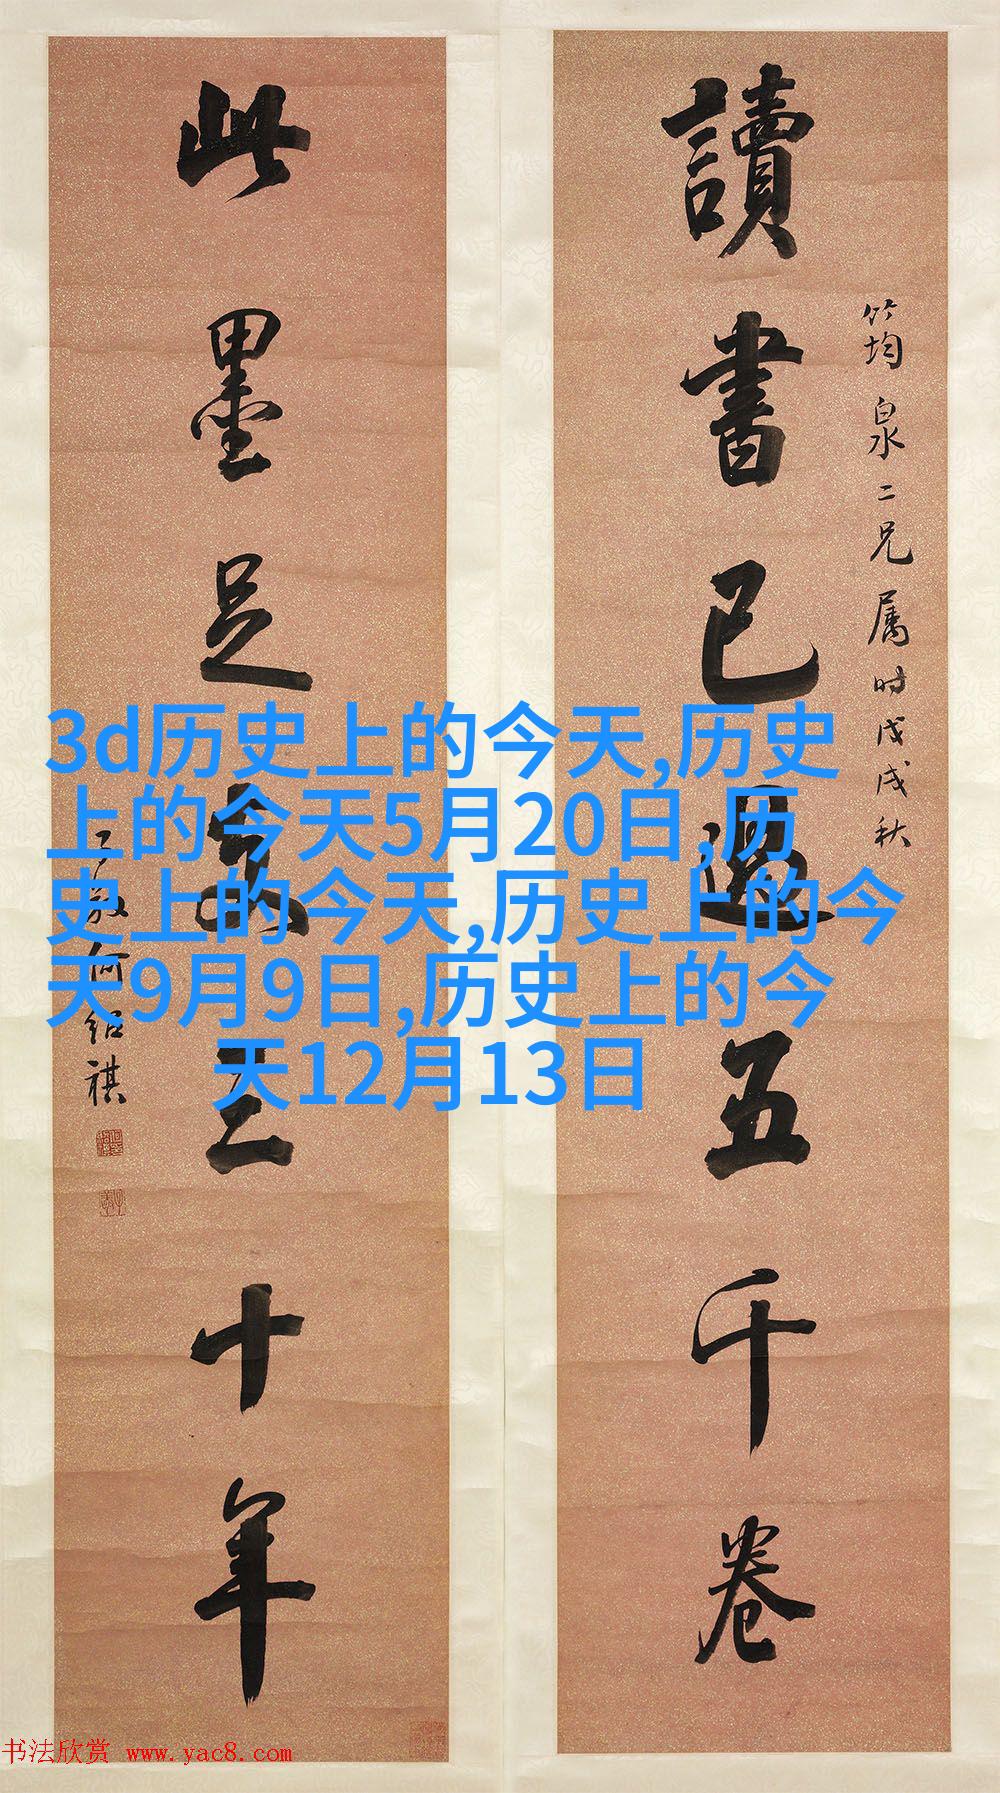 讀書已過五千卷
筠泉二兄属时戊戌秋
此墨足支三十年
子敬何紹祺
3d历史上的今天,历史
上的今天5月20日,历
史上的今天,历史上的今
天9月9日,历史上的今
天12月13日
书法欣赏 www.yac8.com